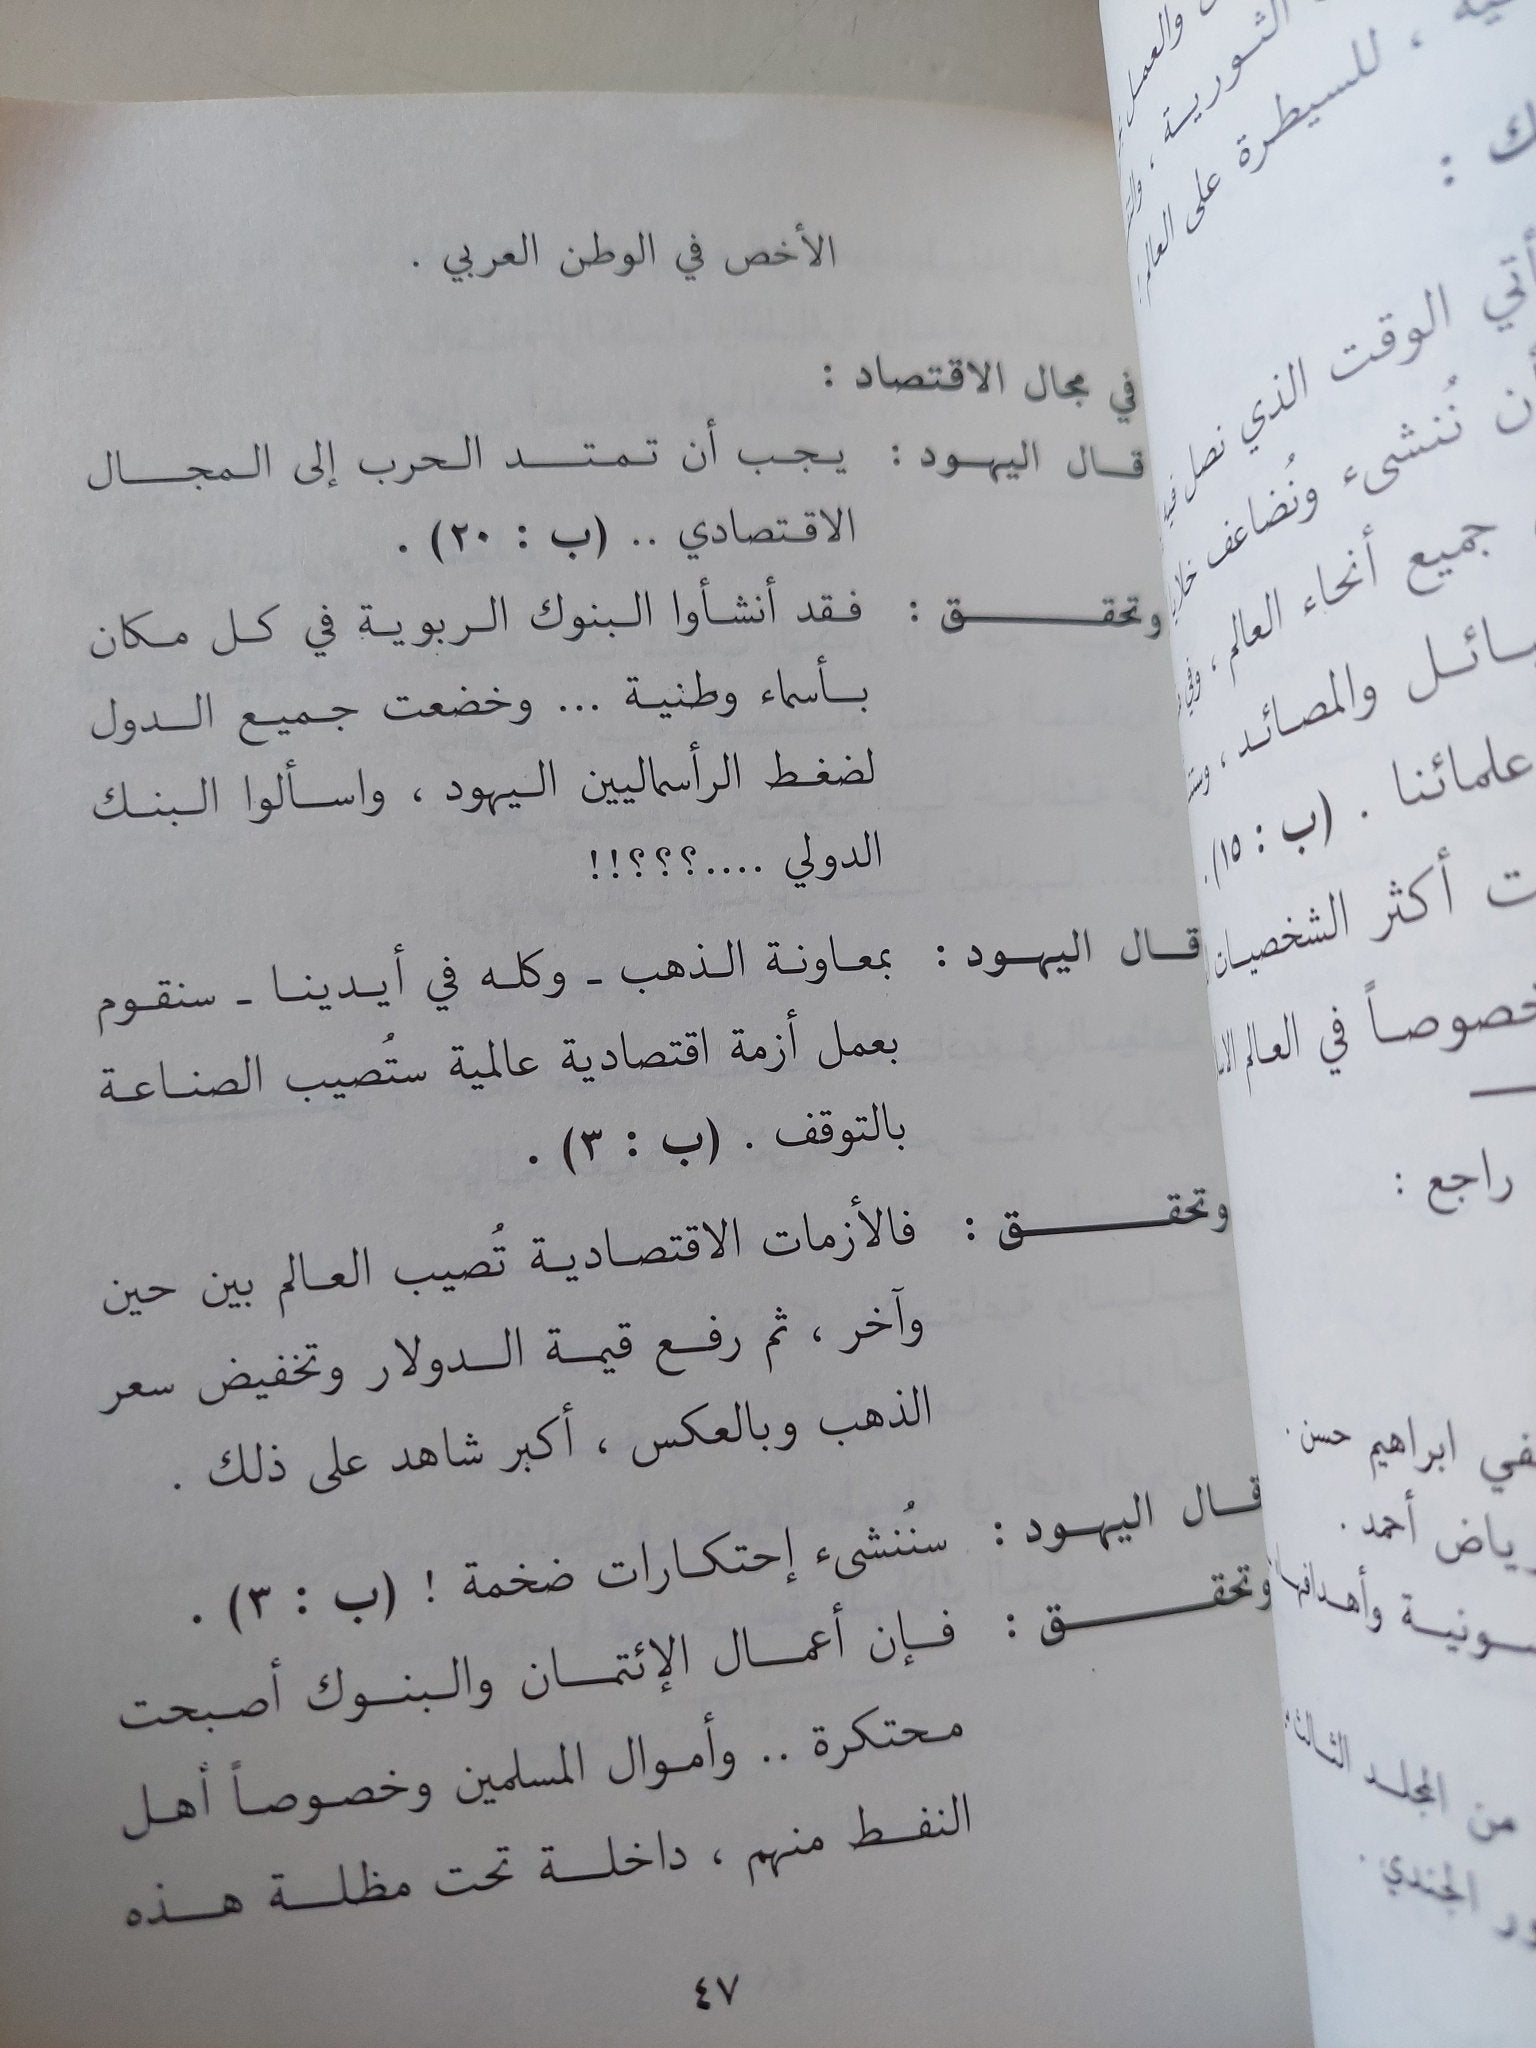 الأخص في الوطن العربي .
في مجال الاقتصاد :
قال اليهود : يجب أن تمتد الحرب إلى المجال
الاقتصادي .. (ب : ٢٠) .
وتحقق : فقد أنشأوا البنوك الربوية في كل مكان
بأسماء وطنية ... وخضعت جميع الدول
لضغط الرأسماليين اليهود ، واسألوا البنك
الدولي ....؟؟؟!!
قال اليهود : بمعاونة الذهب ـ وكله في أيدينا ـ سنقوم
بعمل أزمة اقتصادية عالمية ستُصيب الصناعة
بالتوقف . (ب : ٣) .
وتحقق : فالأزمات الاقتصادية تُصيب العالم بين حين
وآخر ، ثم رفع قيمة الدولار وتخفيض سعر
الذهب وبالعكس ، أكبر شاهد على ذلك .
قال اليهود : سنُنشىء إحتكارات ضخمة ! (ب : ٣) .
وتحقق : فإن أعمال الإئتمان والبنوك أصبحت
محتكرة .. وأموال المسلمين وخصوصاً أهل
النفط منهم ، داخلة تحت مظلة هذه
٤٧
والعمل
الثورية ،
، للسيطرة على العالم
ك :
الوقت الذي نصل
نُنشىء ونُضاعف
جميع أنحاء العالم ، وفي
والمصائد ،
علمائنا . (ب : ١٥).
أكثر
في العالم
راجع :
ابراهيم حسن .
أحمد .
وأهدافها
من المجلد الثالث
الجندي .